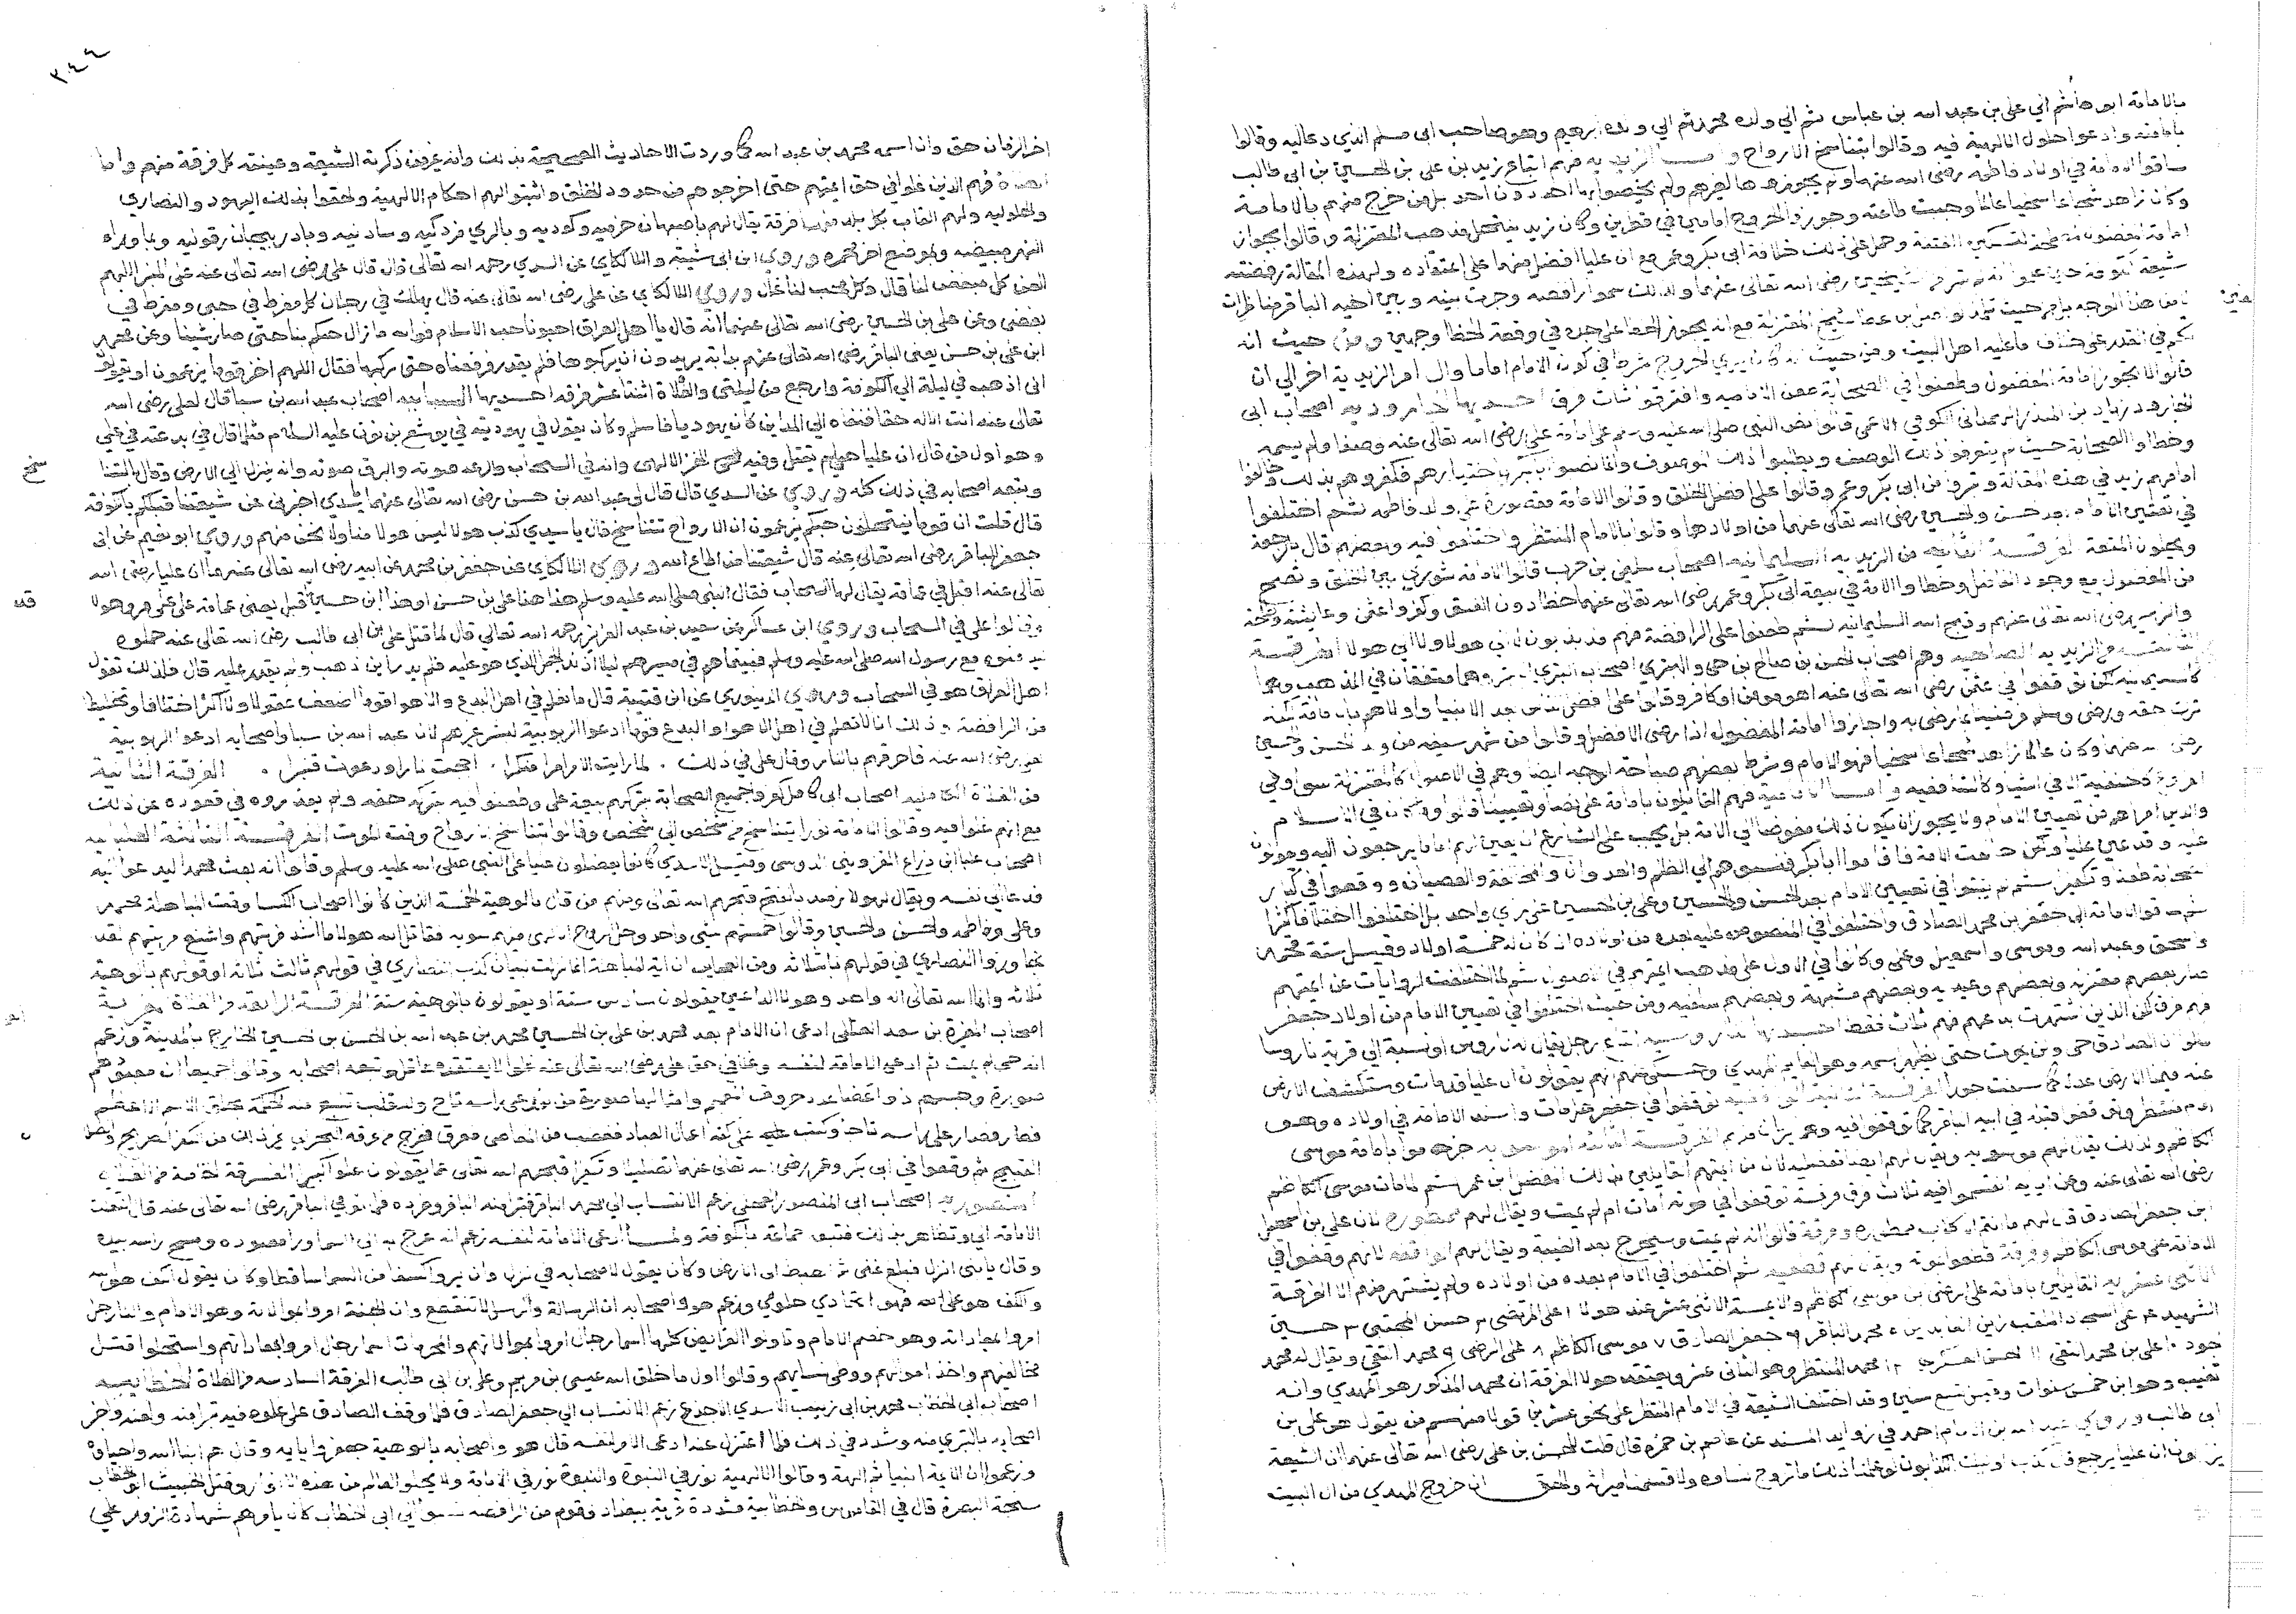 بالامامة ابو هاشم الى على بن عبد الله بن عباس ثم الى ولده محمد ثم الى ولده ابرهيم وهو صاحب ابى مسلم الذي دعا اليه وقالوا
بامامته وادعوا حلول الالهية فيه وقالوا بتناسخ الارواح واما الزيدية فهم اتباع زيد بن على بن الحسين بن ابى طالب
ساقوا الامامة في اولاد فاطمة رضى الله عنها ولم يجوزوها لغيرهم ولم يخصوا بها احد دون احد بل من خرج منهم بالامامة
وكان زاهد شجاعا سخيا عالما وجبت طاعته وجوزوا خروج امامين في قطرين وكان زيد ينتحل مذهب المعتزلة وقالوا بجواز
امامة المفضول لتسكين الفتنة وحمل على ذلك خلافة ابى بكر وعمر مع ان عليا افضل منهما على اعتقاده ولهذه المقالة رفضته
شيعة الكوفة الشيخين رضى الله تعالى عنهما ولذلك سموا رافضة وجرت بينه وبين اخيه الباقر مناظرات
لا من هذا الوجه بل من حيث تلمذ لواصل بن عطا شيخ المعتزلة مع انه يجوز الخطا على جده في وقعة الجمل وصفين ومن حيث انه
تكلم في القدر على خلاف ما عليه اهل البيت ومن حيث انه كان يرى الخروج شرطا في كون الامام اماما وال امر الزيدية اخر الى ان
قالوا لا يجوز امامة المفضول وطعنوا في الصحابة طعن الامامية وافترقوا ثلاث فرق احديها الجارودية اصحاب ابى
الجارود زياد بن المنذر الهمداني الكوفي الاعمى قالوا نص النبى صلى الله عليه وسلم على امامة على رضى الله تعالى عنه وصفا ولم يسمه
وخطاوا الصحابة حيث لم يتعرفوا ذلك الوصف ولم يطلبوا ذلك الموصوف وانما نصبوا ابا بكر باختيارهم فكفروهم بذلك وخالفوا
امامهم زيد في هذه المقالة وتبروا من ابى بكر وعمر وقالوا على افضل الخلق وقالوا الامامة مقصورة على ولد فاطمة ثم اختلفوا
في تعيين الامام بعد حسن وحسين رضى الله تعالى عنهما من اولادها وقالوا بالامام المنتظر واختلفوا فيه وبعضهم قال بالرجعة
ويحلون المتعة الفرقة الثانية من الزيدية السليمانية اصحاب سليمن بن حرب قالوا الامامة شورى بين الخلق وتصح
من المفضول مع وجود الفاضل وخطاوا الامة في بيعة ابى بكر وعمر رضى الله تعالى عنهما خطا دون الفسق وكفروا عثمن وعايشة وطلحة
والزبير رضى الله تعالى عنهم وقبح الله السليمانية ثم طعنوا على الرافضة فهم مذبذبون لا الى هولا ولا الى هولا الفرقة
الثالثة من الزيدية الصالحية وهم اصحاب الحسن بن صالح بن حى والبترى اصحاب البترى وهما متفقان في المذهب وهم
كالسليمانية لكن توقفوا في عثمن رضى الله تعالى عنه اهو مومن او كافر وقالوا على افضل الناس بعد الانبيا واولاهم بالامامة لكنه
ترك حقه ورضى وسلم فرضينا بما رضى به واجازوا امامة المفضول اذا رضى الافضل وقالوا من شهر سيفه من ولد الحسن والحسين
رضى الله عنهما وكان عالما زاهد شجاعا سخيا فهو الامام وشرط بعضهم صباحة الوجه ايضا وهم في الاصول كالمعتزلة سوا وفي
الفروع كالحنفية الا في اشيا وكالشافعية واما الامامية فهم القايلون بامامة على نصا وتعيينا قالوا وما كان في الاسلام
والدين امر اهم من تعيين الامام ولا يجوز ان يكون ذلك مفوضا الى الامة بل يجب على الشارع ان يعين لهم اماما يرجعون اليه وهو نص
عليه وقد عين عليا ولكن خالفت الامة فاقاموا ابا بكر فنسبوهم الى الظلم والعدوان والمخالفة والعصيان ووقعوا في كبار
الصحابة طعنا وتكفيرا ثم لم يثبتوا في تعيين الامام بعد الحسن والحسين وعلى بن الحسين على راى واحد بل اختلفوا اختلافا كثيرا
ثم قالوا بامامة ابى جعفر بن محمد الصادق واختلفوا في المنصوص عليه بعده من اولاده اذ كان له خمسة اولاد وقيل ستة محمد
واسحق وعبد الله وموسى واسمعيل وعلى وكانوا في الاول على مذهب ايمتهم في الاصول ثم لما اختلفت الروايات عن ايمتهم
صار بعضهم معتزلة وبعضهم وعيدية وبعضهم مشبهة وبعضهم سلفية ومن حيث اختلفوا في تعيين الامام من اولاد جعفر
فهم فرق لكن الذين اشتهرت بدعتهم فهم ثلاث فقط احديها الناروسية اتباع رجل يقال له ناروس او نسبة الى قرية ناروسا
قالوا ان الصادق حى ولن يموت حتى يظهر اسمه وهو القايم المهدى وحكى عنهم انهم يقولون ان عليا قد مات وستنشق الارض
عنه فيملا الارض عدلا كما ملئت جورا الفرقة الثانية الواقفية توقفوا في جعفر هل مات واسند الامامة في اولاده وهو
المنتظر فتوقفوا فيه في ابيه الباقر كما توقفوا فيه الفرقة الثالثة الموسوية جزموا بامامة موسى
الكاظم ولذلك يقال لهم موسوية ويقال لهم ايضا مفضلية لان من ايمتهم القايلين بذلك المفضل بن عمر ثم لما مات موسى الكاظم
رضى الله تعالى عنه انقسموا فيه ثلاث فرق فرقة توقفوا في موته امات ام لم يمت ويقال لهم ممطورة لان على بن اسمعيل
ابن جعفر الصادق قال لهم ما انتم الا كلاب ممطورة وفرقة قالوا انه لم يمت وسيخرج بعد الغيبة ويقال لهم الواقفة لانهم وقفوا في
الامامة على موسى الكاظم وفرقة قطعوا بموته ويقال لهم قطعية ثم اختلفوا في الامام بعده من اولاده ولم يشتهر منهم الا الفرقة
الاثنى عشرية القايلين بامامة على الرضى بن موسى الكاظم والايمة الاثنى عشر عند هولا ١ على المرتضى ٢ حسن المجتبى ٣ حسين
الشهيد ٤ على السجاد الملقب زين العابدين ٥ محمد الباقر ٦ جعفر الصادق ٧ موسى الكاظم ٨ على الرضى ٩ محمد التقي ويقال له محمد
الجود ١٠ على بن محمد النقي ١١ الحسن العسكرى ١٢ محمد المنتظر وهو الثانى عشر ويعتقد هولا الفرقة ان محمد المذكور هو المهدي وانه
تغيب وهو ابن خمس سنوات وقيل تسع سنين وقد اختلف الشيعة في الامام المنتظر على نحو عشرين قولا منهم من يقول هو على بن
ابى طالب وروى عبد الله بن الامام احمد في زوايد المسند عن عاصم بن حمزه قال قلت للحسن بن على رضى الله تعالى عنهما ان الشيعة
يزعمون ان عليا يرجع قال كذب اوليك الكذابون لو علمنا ذلك ما تزوج نساوه ولا قسمنا ميراثه والحق ان خروج المهدي من ال البيت
٢٤٤
اخر الزمان حق وان اسمه محمد بن عبد الله كما وردت الاحاديث الصحيحة بذلك وانه غير من ذكرته الشيعة وعينته كل فرقة منهم واما
الغلاة فهم الذين غلوا في حق ايمتهم حتى اخرجوهم من حدود الخلق واثبتوا لهم احكام الالهية ولحقوا بذلك اليهود والنصارى
والحلولية ولهم القاب بكل بلد منها فرقة يقال لهم باصبهان خرميه وكوديه وبالري مزدكيه وسادنيه وباذربيجان رقوليه وبما وراء
النهر مبيضه وبموضع اخر محمره وروى ابن ابى شيبة واللالكاي عن السدي رحمه الله تعالى قال قال على رضى الله تعالى عنه على المنبر اللهم
العن كل مبغض لنا قال وكل محب لنا غال وروى اللالكاي عن على رضى الله تعالى عنه قال يهلك في رجلان كل مفرط في حبى ومفرط في
بغضى وعن على بن الحسين رضى الله تعالى عنهما انه قال يا اهل العراق احبونا حب الاسلام فوالله ما زال حبكم بنا حتى صار شينا وعن محمد
ابن على بن حسين يعنى الباقر رضى الله تعالى عنهم بدابة يريدون ان يركبوها فلم يقدر فرفعناه حتى ركبها فقال اللهم اخزهم يزعمون او يقولون
انى اذهب في ليلة الى الكوفة وارجع من ليلتى والغلاة اثنتا عشر فرقه احديها السبايه اصحاب عبد الله بن سبا قال لعلى رضى الله
تعالى عنه انت الاله حقا فنفاه الى المداين كان يهوديا فاسلم وكان يقول في يهوديته في يوشع بن نون عليه السلام مثل ما قال في بدعته في على
وهو اول من قال ان عليا حى لم يقتل وفيه الجز الالهى وانه في السحاب والرعد صوته والبرق صوته وانه ينزل الى الارض وقال بالتنا
سخ
وتبعه اصحابه في ذلك كله وروى عن السدي قال قال لى عبد الله بن حسن رضى الله تعالى عنهما يا سدي اخبرنى عن شيعتنا قبلكم بالكوفة
قال قلت ان قوما ينتحلون حبكم يزعمون ان الارواح تتناسخ قال يا سدي كذب هولا ليس هولا منا ولا نحن منهم وروى ابو نعيم عن ابى
جعفر الباقر رضى الله تعالى عنه قال شيعتنا من اطاع الله وروى اللالكاي عن جعفر بن محمد عن ابيه رضى الله تعالى عنهما ان عليا رضى الله
تعالى عنه اقبل في عمامة يقال لها السحاب فقال النبى صلى الله عليه وسلم هذا هنا على بن حسن او هذا ابن حسين اقبل يعنى عمامة على
قد
وقالوا على في السحاب وروى ابن عساكر عن سعيد بن عبد العزيز رحمه الله تعالى قال لما قتل على بن ابى طالب رضى الله تعالى عنه حملوه
ليدفنوه مع رسول الله صلى الله عليه وسلم فبينما هم في مسيرهم ليلا اذ ند الجمل الذي هو عليه فلم يدر اين ذهب ولم يقدر عليه قال فلذلك تقول
اهل العراق هو في السحاب وروى الدينوري عن ابن قتيبة قال ما نعلم في اهل البدع والاهوا قوما اضعف عقولا ولا اكثر اختلافا وتخليطا
من الرافضة وذلك انا لا نعلم في اهل الاهوا والبدع قوما ادعوا الربوبية لبشر غيرهم لان عبد الله بن سبا واصحابه ادعوا الربوبية
لعلى رضى الله عنه فاحرقهم بالنار وقال على في ذلك لما رايت الامر امرا منكرا اججت نارا ودعوت قنبرا الفرقة الثانية
من الغلاة الكاملية اصحاب ابى كامل كفر وجميع الصحابة بتركهم بيعة على وطعنوا فيه بتركه حقه ولم يعذروه في قعوده عن ذلك
مع انهم غلوا فيه وقالوا الامامة نور يتناسخ من شخص الى شخص وقالوا بتناسخ الارواح وقت الموت الفرقة الثالثة العلبائية
اصحاب علبا بن ذراع الدوسى وقيل الاسدي كانوا يفضلون عليا على النبى صلى الله عليه وسلم وقالوا انه بعث محمد ليدعو اليه
فدعا الى نفسه ويقال لهولا قبحهم الله تعالى ومنهم من قال بالوهية الخمسة الذين كانوا اصحاب الكسا وقت المباهلة محمد
وعلى وفاطمه والحسن والحسين وقالوا خمستهم شى واحد وحل الروح فيهم سويه فقاتل الله هولا ما اشد فريتهم واشنع مريتهم لقد
جاوزوا النصارى في قولهم بالثلاثة ومن العجايب ان اية المباهلة انما نزلت ببيان كذب النصارى في قولهم ثالث ثلاثه او قولهم بالوهية
ثلاثه وانما الله تعالى اله واحد وهولا الداعين يقولون سادس ستة او يقولون بالوهية ستة الفرقة الرابعة من الغلاة المغيرية
اصحاب المغيرة بن سعد العجلى ادعى ان الامام بعد محمد بن على بن الحسين محمد بن عبد الله بن الحسن بن الحسين الخارج بالمدينة وزعم
انه حى لم يمت ثم ادعى الامامة لنفسه وغلا في حق على رضى الله تعالى عنه غلوا لا يعتقده عاقل وتبعه اصحابه وقالوا جميعا ان معبودهم
صورة وجسم ذو اعضا على حروف المعجم
فطار فصار على راسه تاجا وكتب على كفه اعمال العباد فغضب من المعاصى فعرق
القبيح ثم وقعوا في ابى بكر وعمر رضى الله تعالى عنهما تضليلا وتكفيرا قبحهم الله تعالى عما يقولون علوا كبيرا الفرقة الخامسة من الغلاة
المنصوريه اصحاب ابى المنصور العجلى زعم الانتساب الى محمد الباقر فتبرا منه الباقر وطرده فلما توفي الباقر رضى الله تعالى عنه قال انتقلت
الامامة الى وتظاهر بذلك فتبعه جماعة بالكوفة ولما ادعى الامامة لنفسه زعم انه عرج به الى السما وراى معبوده ومسح راسه بيده
وقال يا بنى انزل فبلغ عنى ثم اهبط الى الارض وكان يقول لاصحابه في نزل وان يروا كسفا من السما ساقطا وكان يقول الكسف هو الله
والكسف هو على فهو اتحادي حلولي وزعم هو واصحابه ان الرسالة والرسل لا تنقطع وان الجنة امروا بموالاته وهو الامام والنار رجل
امروا بمعاداته وهو خصم الامام وتاولوا الفرايض كلها اسما رجال امروا بموالاتهم والمحرمات اسما رجال امروا بمعاداتهم واستحلوا قتل
مخالفيهم واخذ اموالهم ووطى نسايهم وقالوا اول ما خلق الله عيسى بن مريم وعلى بن ابى طالب الفرقة السادسه من الغلاة الخطابيه
اصحاب ابى الخطاب محمد بن ابى زينب الاسدي الاجدع زعم الانتساب الى جعفر الصادق فلما وقف الصادق على غلوه فيه تبرا منه ولعنه واخبر
اصحابه بالتبري منه وشدد في ذلك فلما اعتزل عنه ادعى الامر لنفسه قال هو واصحابه بالوهية جعفر وابايه وقال هم ابنا الله واحباوه
وزعموا ان الايمة انبيا ثم الهة وقالوا الالهية نور في النبوة والنبوة نور في الامامة ولا يخلو العالم من هذه الانوار وقتل الخبيث ابو الخطاب
بسبخة البصرة قال في القاموس وخطابية مشددة قرية ببغداد وقوم من الرافضه نسبوا الى ابى الخطاب كان يامرهم بشهادة الزور على